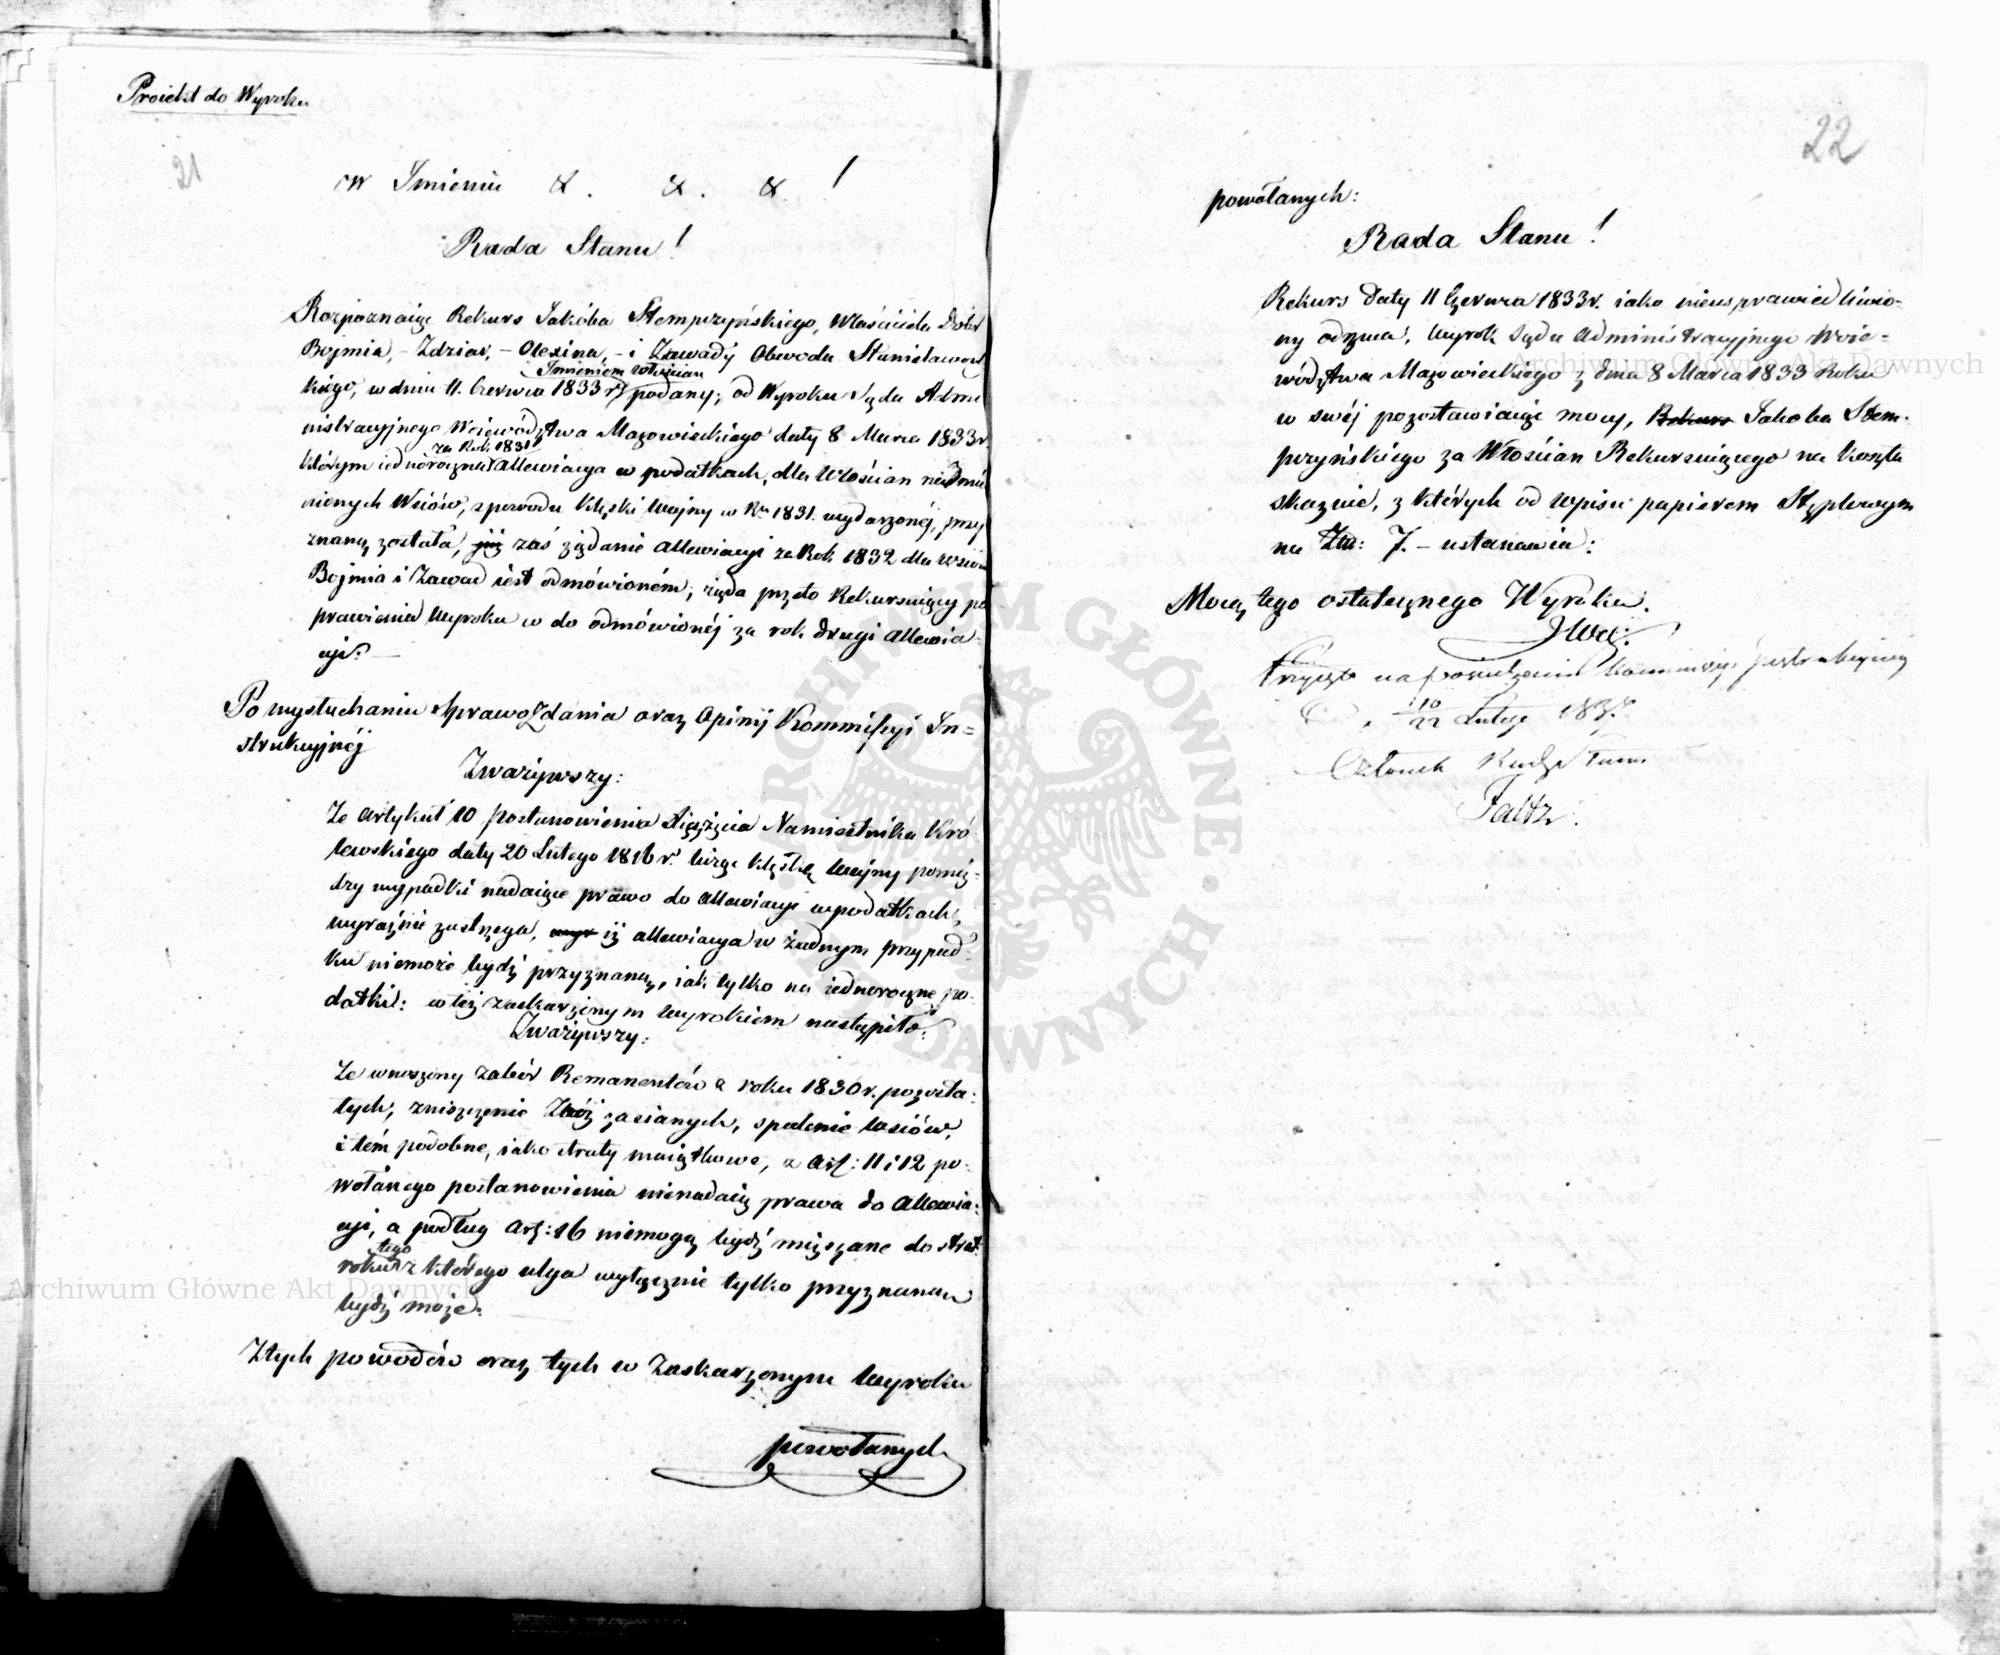 Proiekt do Wyroku
21
w Imieniu &. &. & !
Rada Stanu!
Rozpoznaiąc Rekurs Jakóba Stempczyńskiego, Właściciela Dóbr
Bojmia, - Zdziar, - Olexina, - i Zawady Obwodu Stanisławows
Imieniem włościan
kiego, w dniu 11. Czerwca 1833 r. podany; od Wyroku Sądu Admi
nistracyjnego Woiewództwa Mazowieckiego daty 8 Marca 1833 r
za Rok 1831
którym iednoroczna allewiacya w podatkach, dla Włościan nadmie
nionych Wsiów, z powodu klęski woyny w Ru 1831. wydarzonéj, przy
znaną została, już zaś żądanie allewiacyi za Rok 1832 dla wsiów
Bojmia i Zawad iest odmówioném; żąda przeto Rekursuiący po
prawienia wyroku w do odmówionéj za rok drugi allewia-
cyi. —
Po wysłuchaniu Sprawozdania oraz Opinij Kommissyi In=
strukcyjnéj
Zważywszy:
Że artykuł 10 postanowienia Xiążęcia Namiestnika Kró
lewskiego daty 20 Lutego 1816 r. licząc klęskę woyny pomię-
dzy wypadki nadaiące prawo do allewiacyi w podatkach,
wyraźnie zastrzega, wyr iż allewiacya w żadnym przypad-
ku niemoże bydź przyznaną, iak tylko na iednoroczne po-
datki: co też zaskarżonym wyrokiem nastąpiło.
Zważywszy:
Że wnoszony zabór Remanentów z roku 1830 r. pozosta-
łych, zniszczenie Zbóż zasianych, spalenie lasów,
i tém podobne, iako straty maiątkowe, z Art: 11 i 12 po-
wołanego postanowienia nienadaią prawa do allewia-
cyi, a podług Art: 16 niemogą bydź mięszane do strat
tego
roku z którego ulga wyłącznie tylko przyznaną
bydź może.
Z tych powodów oraz tych w Zaskarżonym wyroku
powołanych
22
powołanych:
Rada Stanu!
Rekurs daty 11 Czerwca 1833 r. iako nieusprawiedliwio-
ny odrzuca, wyrok Sądu Administracyjnego Woie-
wództwa Mazowieckiego z dnia 8 Marca 1833 Roku
w swéj pozostawiaiąc mocy, Rekurs Jakóba Stem-
pczyńskiego za Włościan Rekursuiącego na koszta
skazuie, z których od wpisu papierem Stęplowym
na Złł: 7. - ustanawia:
Mocą tego ostatecznego Wyroku.
Przyjęto na posiedzeniu Kommissyi Instrukcyinej
D. 10/22 Lutego
Członek Rady Stanu
Faltz.
Archiwum Główne Akt Dawnych
Archiwum Główne Akt Dawnych
ARCHIWUM GŁÓWNE AKT DAWNYCH